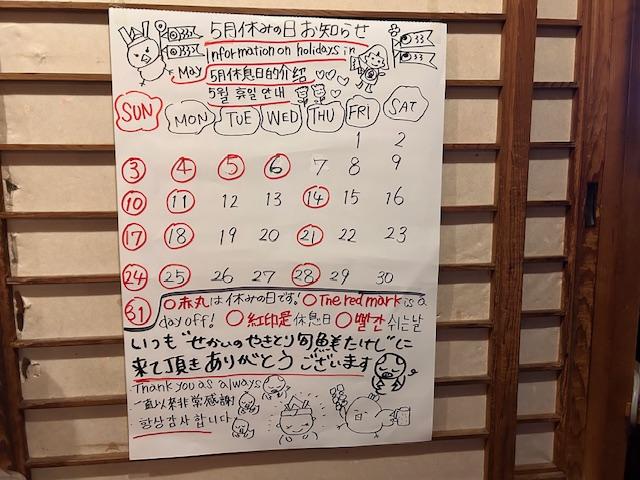 5月休みの日お知らせ
Information on holidays in
May 5月休息日的介绍
5月 휴일 안내
SUN MON TUE WED THU FRI SAT
1 2
3 4 5 6 7 8 9
10 11 12 13 14 15 16
17 18 19 20 21 22 23
24 25 26 27 28 29 30
31 ○赤丸は休みの日です! ○The red mark is a
day off! ○紅印是休息日 ○빨간 쉬는날
いつも"せかいのやきとり旬魚もたけし"に
来て頂きありがとうございます
Thank you as always
一直以来非常感謝
항상감사합니다